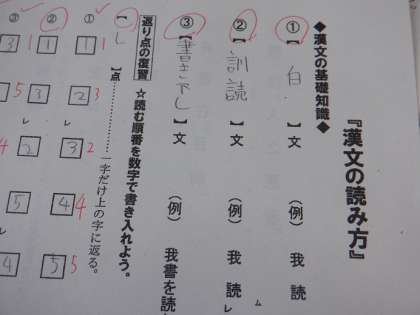 『漢文の読み方』
◆漢文の基礎知識◆
①【 白 】文 (例) 我 読
②【 訓読 】文 (例) 我 読 レ ム
③【書き下し】文 (例) 我書を読
返り点の復習 ☆読む順番を数字で書き入れよう。
【レ】点………一字だけ上の字に返る。
① 1 1 2 3 レ 3 2 4 4 5 5
② 1 1 3 レ 2 5 4
③ 3